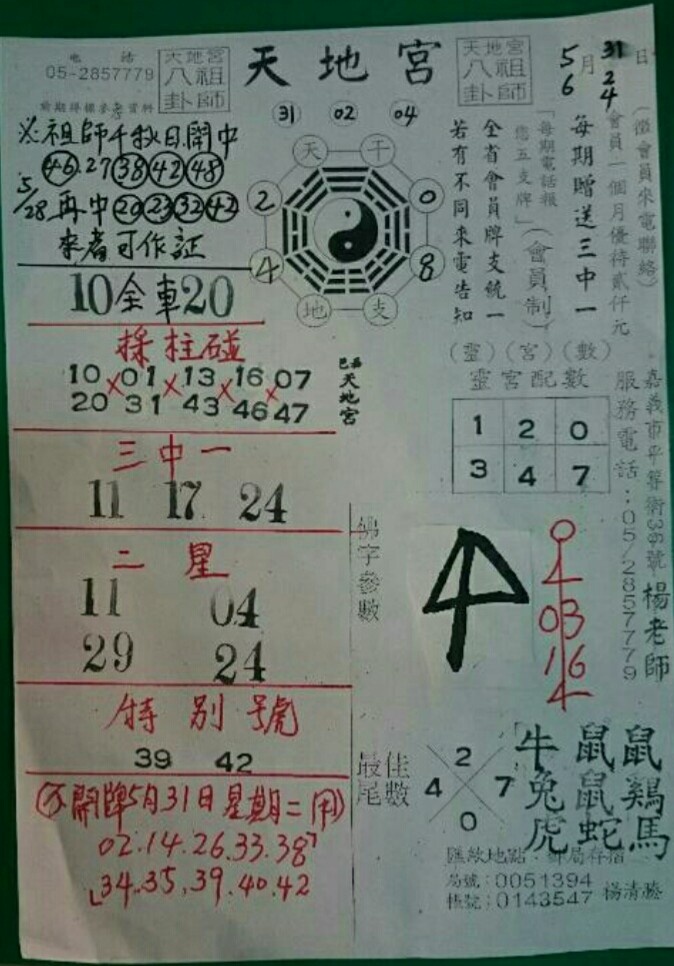 電話
05-2857779
天地宮
八祖
卦師
天地宮
天地宮
八祖
卦師
5月31日
6 2 4
31 02 04
※祖師千秋日開中
46.27 38 42 48
5/28再中 20 23 32 42
來者可作証
天 干
2 0
4 8
地 支
(徵會員來電聯絡)
會員一個月優待貳仟元
每期贈送三中一
「每期電話報
您五支牌」(會員制)
全省會員牌支統一
若有不同來電告知
10全車20
採柱碰
10×01×13×16×07
20 31 43 46 47
天地宮
三中一
11 17 24
二星
11 04
29 24
特別號
39 42
(靈)(宮)(數)
靈宮配數
1 2 0
3 4 7
嘉義市平等街38號楊老師
服務電話:05/2857779
佛字參數
03
16
最佳
尾數
2
4 7
0
牛 鼠 鼠
兔 鼠 鷄
虎 蛇 馬
開牌5月31日星期二
02.14.26.33.38
34.35.39.40.42
匯款地點:郵局存摺
局號:0051394
帳號:0143547 楊清滕